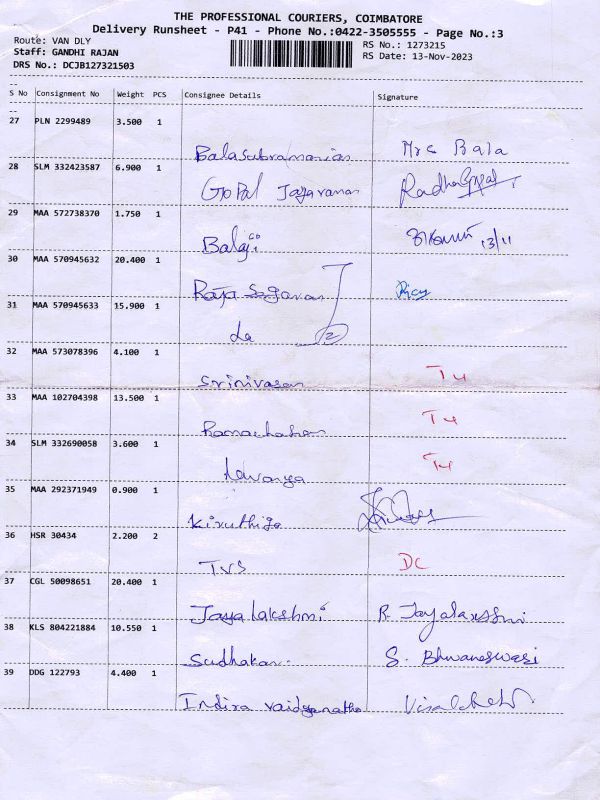 THE PROFESSIONAL COURIERS, COIMBATORE
Delivery Runsheet - P41 - Phone No.:0422-3505555 - Page No.:3
Route: VAN DLY
RS No.: 1273215
Staff: GANDHI RAJAN
RS Date: 13-Nov-2023
DRS No.: DCJB127321503
S No Consignment No Weight PCS Consignee Details Signature
27 PLN 2299489 3.500 1
Balasubramanian Mrs Bala
28 SLM 332423587 6.900 1
Gopal Jayaraman RadhaGopal
29 MAA 572738370 1.750 1
Balaji 13/11
30 MAA 570945632 20.400 1
Raja
31 MAA 570945633 15.900 1
do 2
32 MAA 573078396 4.100 1
Srinivasan
33 MAA 102704398 13.500 1
34 SLM 332690058 3.600 1
Lavanya
35 MAA 292371949 0.900 1
Kiruthiga
36 HSR 30434 2.200 2
TVS DC
37 CGL 50098651 20.400 1
Jayalakshmi R. Jayalaxsmi
38 KLS 804221884 10.550 1
Sudhakar S. Bhuvaneswari
39 DDG 122793 4.400 1
Indira Vaidyanatha